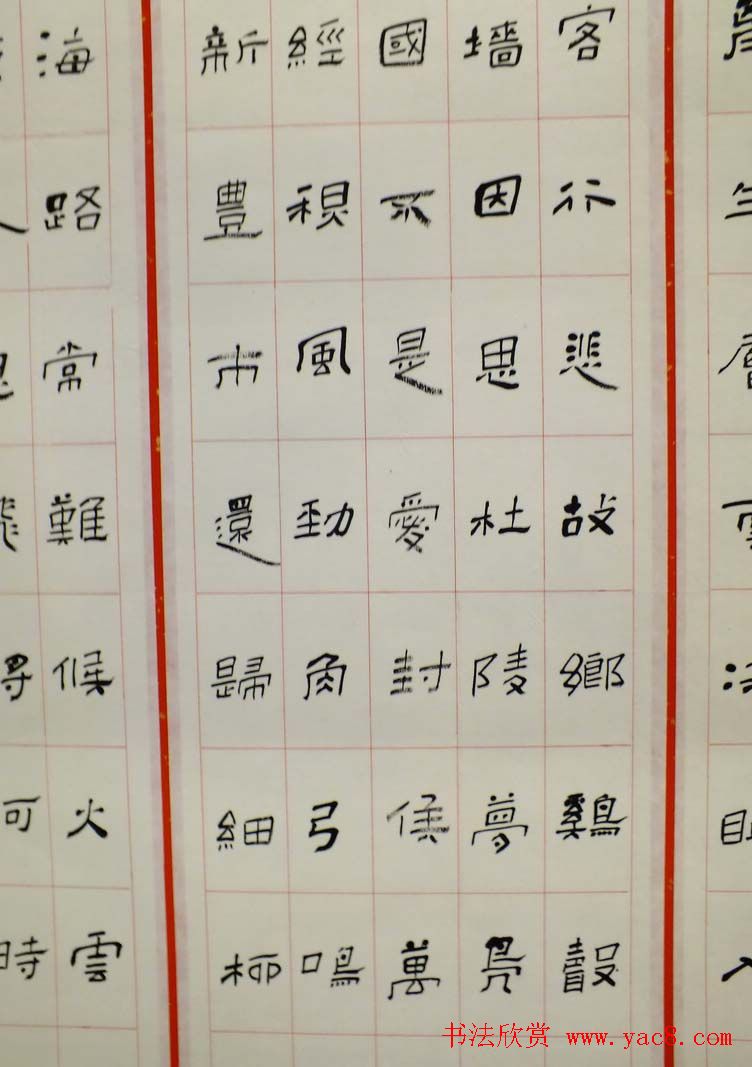 客行悲故鄉鷄聲
墻因思杜陵夢鳧
國不是愛封侯萬
經風勁角弓鳴
新豊市還歸細柳
海路常難候火雲
可時
书法欣赏 www.yac8.com